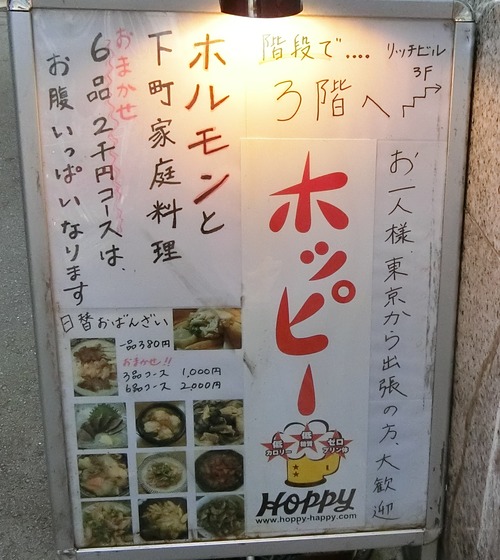 階段で....
リッチビル
3F
3階へ
ホルモンと
下町家庭料理
おまかせ
6品2千円コースは、
お腹いっぱいなります
お一人様、東京から出張の方、大歓迎
ホッピー
低
カロリー
低
糖質
ゼロ
プリン体
HOPPY
www.hoppy-happy.com
日替おばんざい
一品380円
おまかせ!!
3品コース 1,000円
6品コース 2,000円